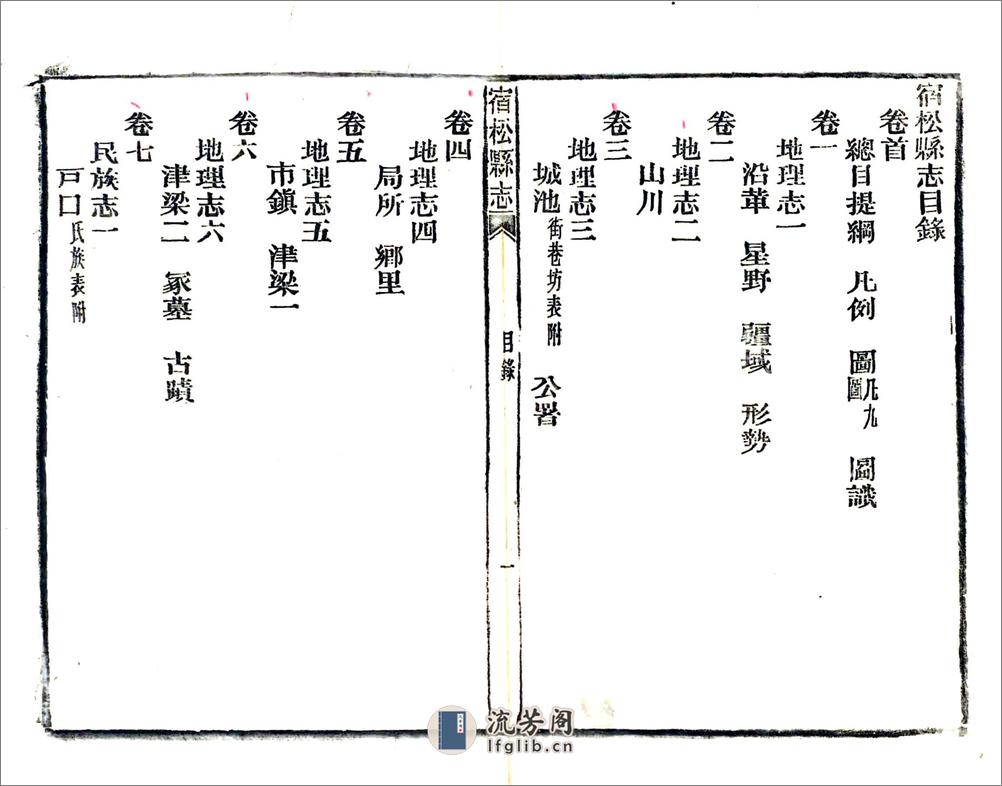 宿松縣志目錄
卷首
總目提綱 凡例 圖凡九圖 圖識
卷一
地理志一
沿革 星野 疆域 形勢
卷二
地理志二
山川
卷三
地理志三
城池街巷坊表附 公署
宿松縣志 目錄 一
卷四
地理志四
局所 鄉里
卷五
地理志五
市鎮 津梁一
卷六
地理志六
津梁二 冢墓 古蹟
卷七
民族志一
戸口氏族表附
流芳阁
lfglib.cn